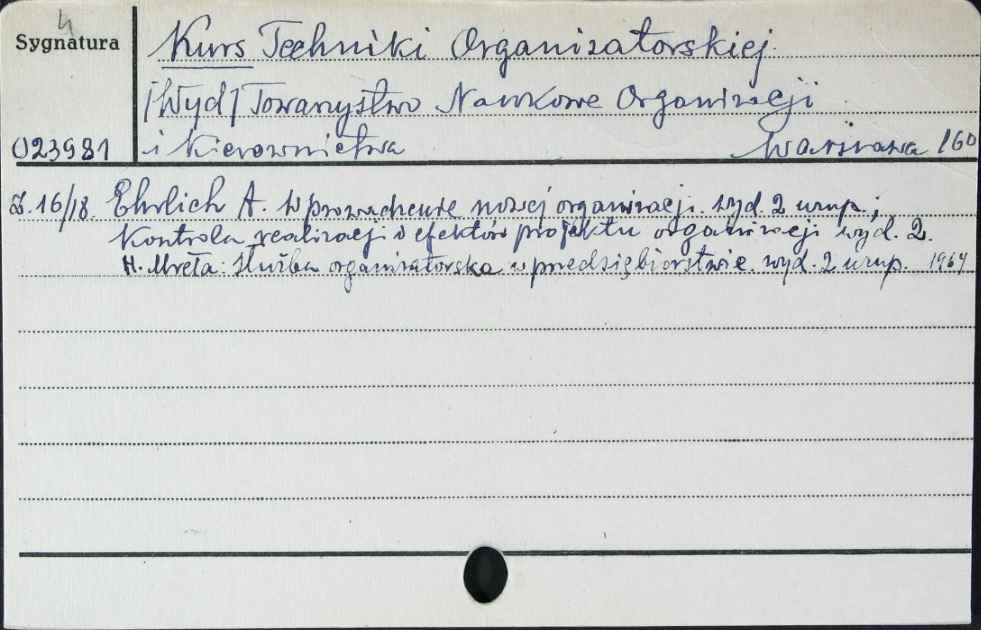 4
Sygnatura
Kurs Techniki Organizatorskiej
[Wyd] Towarzystwo Naukowe Organizacji
023981
i Kierownictwa Warszawa 160
Z. 16/18. Ehrlich A. Wprowadzenie nowej organizacji. wyd. 2 uzup.;
Kontrola realizacji i efektów projektu organizacji wyd. 2.
H. Mreła: Służba organizatorska w przedsiębiorstwie. wyd. 2 uzup. 1964